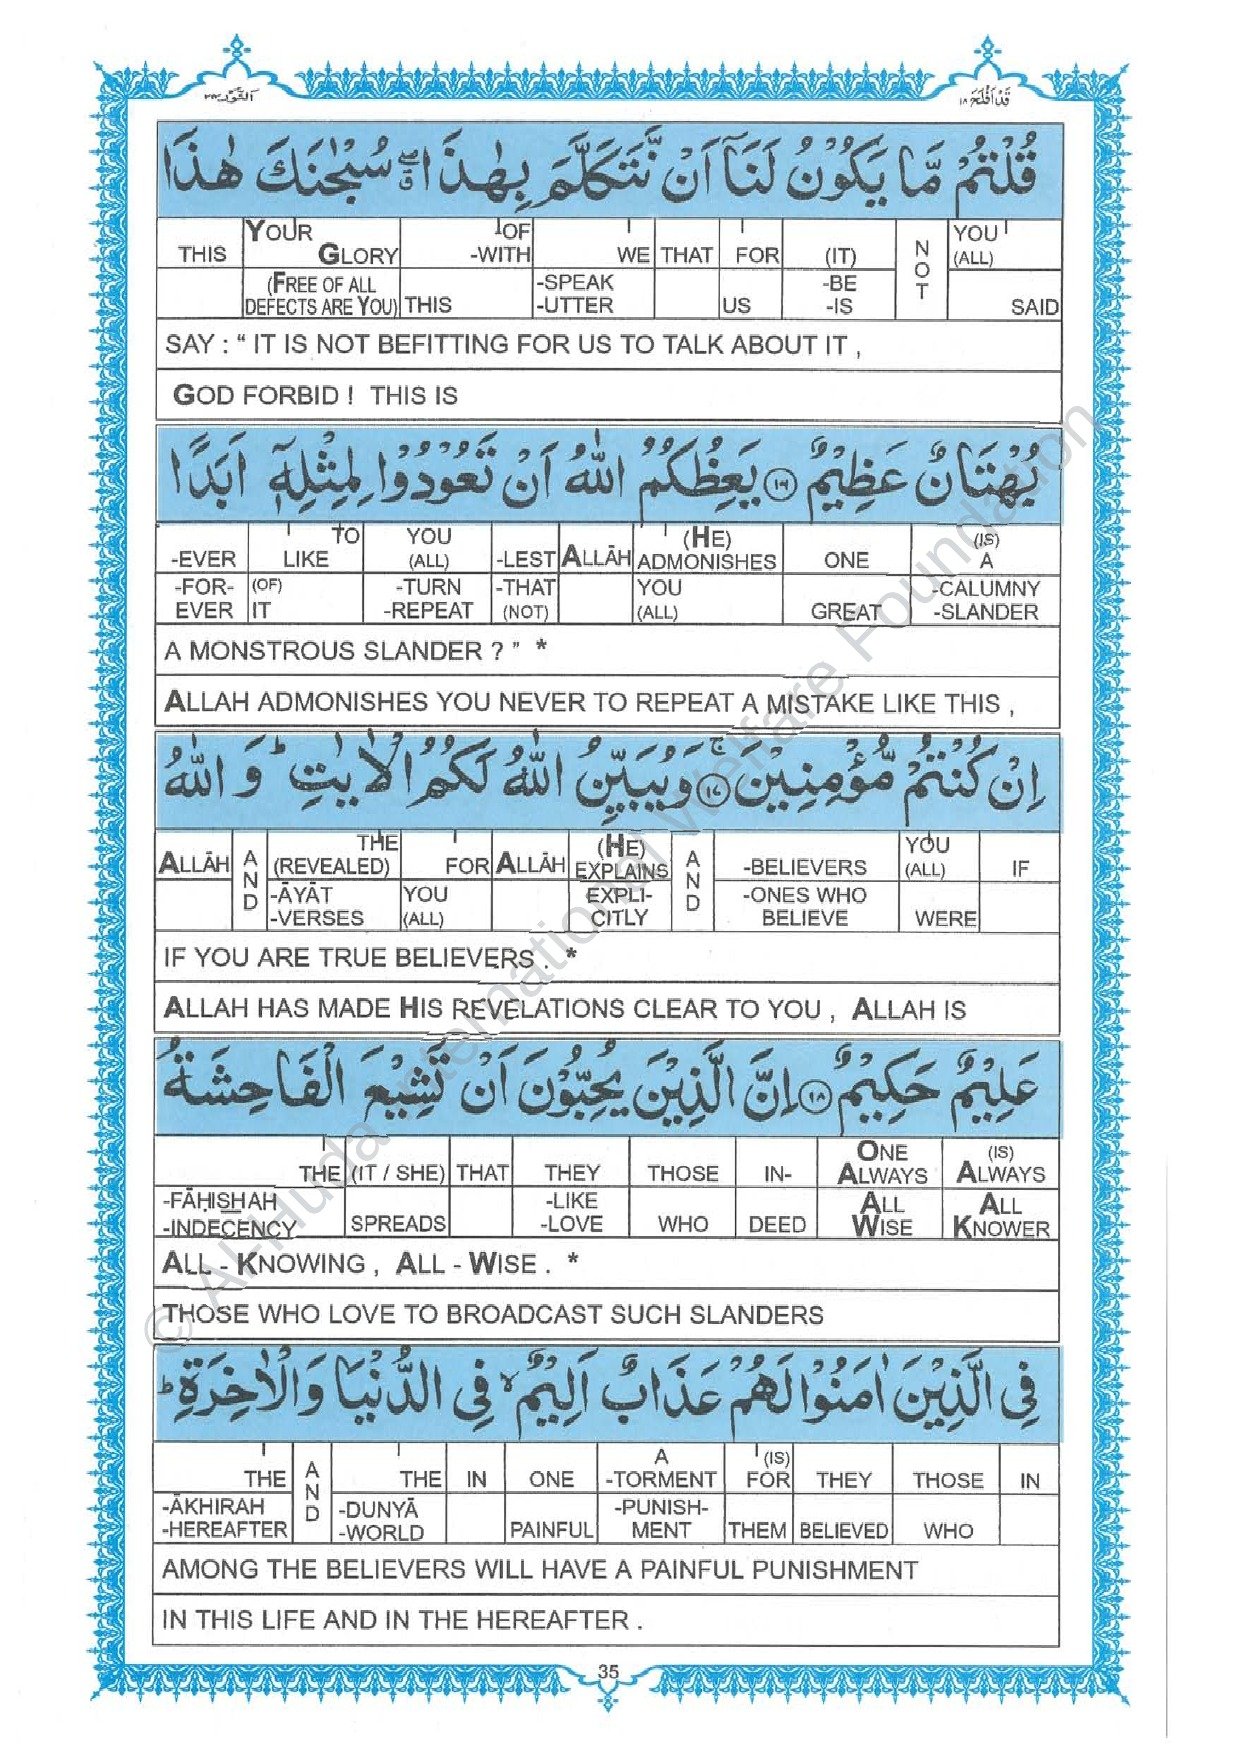 النور ٢٤
قد افلح ١٨
قُلْتُمْ مَّا يَكُوْنُ لَنَآ اَنْ نَّتَكَلَّمَ بِهٰذَا ۖ سُبْحٰنَكَ هٰذَا
THIS YOUR GLORY OF -WITH WE THAT FOR (IT) NOT YOU (ALL)
(FREE OF ALL DEFECTS ARE YOU) THIS -SPEAK -UTTER US -BE -IS SAID
SAY : “ IT IS NOT BEFITTING FOR US TO TALK ABOUT IT ,
GOD FORBID ! THIS IS
بُهْتَانٌ عَظِيْمٌ ﴿١٦﴾ يَعِظُكُمُ اللّٰهُ اَنْ تَعُوْدُوْا لِمِثْلِهٖٓ اَبَدًا
-EVER TO LIKE YOU (ALL) -LEST ALLĀH (HE) ADMONISHES ONE (IS) A
-FOR-EVER (OF) IT -TURN -REPEAT -THAT (NOT) YOU (ALL) GREAT -CALUMNY -SLANDER
A MONSTROUS SLANDER ? ” *
ALLAH ADMONISHES YOU NEVER TO REPEAT A MISTAKE LIKE THIS ,
اِنْ كُنْتُمْ مُّؤْمِنِيْنَ ۚ ﴿١٧﴾ وَيُبَيِّنُ اللّٰهُ لَكُمُ الْاٰيٰتِ ؕ وَاللّٰهُ
ALLĀH AND THE (REVEALED) FOR ALLĀH (HE) EXPLAINS AND -BELIEVERS YOU (ALL) IF
-ĀYĀT -VERSES YOU (ALL) EXPLI-CITLY -ONES WHO BELIEVE WERE
IF YOU ARE TRUE BELIEVERS . *
ALLAH HAS MADE HIS REVELATIONS CLEAR TO YOU , ALLAH IS
عَلِيْمٌ حَكِيْمٌ ﴿١٨﴾ اِنَّ الَّذِيْنَ يُحِبُّوْنَ اَنْ تَشِيْعَ الْفَاحِشَةُ
THE (IT / SHE) THAT THEY THOSE IN- ONE ALWAYS (IS) ALWAYS
-FĀḤISHAH -INDECENCY SPREADS -LIKE -LOVE WHO DEED ALL WISE ALL KNOWER
ALL - KNOWING , ALL - WISE . *
THOSE WHO LOVE TO BROADCAST SUCH SLANDERS
فِى الَّذِيْنَ اٰمَنُوْا لَهُمْ عَذَابٌ اَلِيْمٌ ۙ فِى الدُّنْيَا وَالْاٰخِرَةِ ؕ
THE AND THE IN ONE A -TORMENT (IS) FOR THEY THOSE IN
-ĀKHIRAH -HEREAFTER -DUNYĀ -WORLD PAINFUL -PUNISH-MENT THEM BELIEVED WHO
AMONG THE BELIEVERS WILL HAVE A PAINFUL PUNISHMENT
IN THIS LIFE AND IN THE HEREAFTER .
35
© Al-Huda International Welfare Foundation